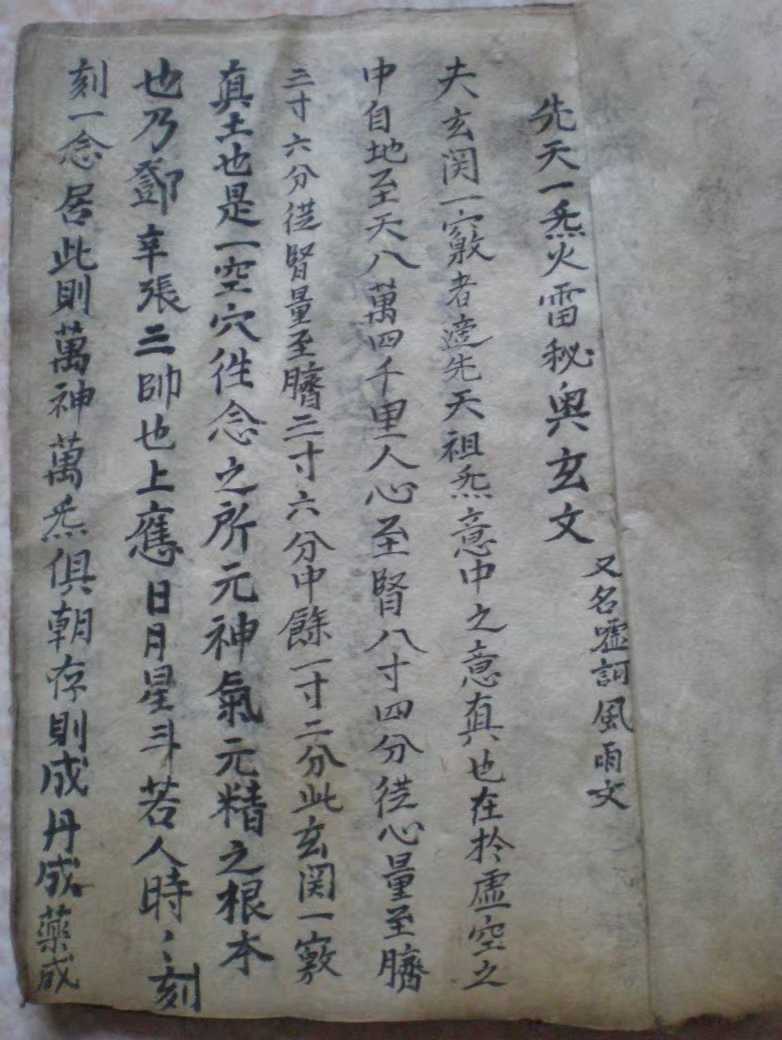 先天一炁火雷秘奥玄文
又名嘘訶風雨文
夫玄関一竅者遶先天祖炁意中之意真也在扵虚空之
中自地至天八萬四千里人心至腎八寸四分従心量至臍
三寸六分従腎量至臍三寸六分中餘一寸二分此玄関一竅
真土也是一空穴徃念之所元神氣元精之根本
也乃鄧辛張三帥也上應日月星斗若人時〻刻
刻一念居此則萬神萬炁俱朝存則成丹成藥成